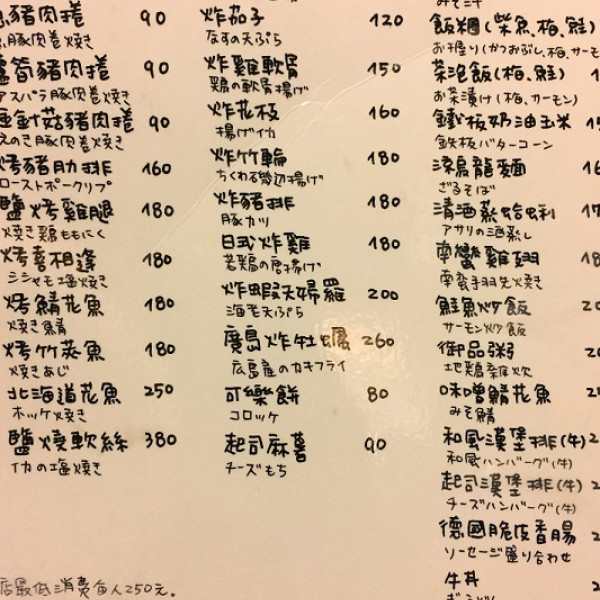 豬肉捲 90
豚肉巻き焼き
蘆筍豬肉捲 90
アスパラ豚肉巻き焼き
金針菇豬肉捲 90
えのき豚肉巻焼き
烤豬肋排 160
ローストポークリブ
鹽烤雞腿 180
焼き鶏ももにく
烤喜相逢 180
シシャモ塩焼き
烤鯖花魚 180
焼き鯖
烤竹莢魚 180
焼きあじ
北海道花魚 250
ホッケ焼き
鹽燒軟絲 380
イカの塩焼き
店最低消費每人250元。
炸茄子 120
なすの天ぷら
炸雞軟骨 150
鶏の軟骨揚げ
炸花枝 160
揚げイカ
炸竹輪 180
ちくわ磯辺揚げ
炸豬排 180
豚カツ
日式炸雞 180
若鶏の唐揚げ
炸蝦天婦羅 200
海老天ぷら
廣島炸牡蠣 260
広島産のカキフライ
可樂餅 80
コロッケ
起司麻薯 90
チーズもち
みそ汁
飯糰(柴魚、梅、鮭)
お握り(かつおぶし、梅、サーモ
茶泡飯(梅、鮭)
お茶漬け(梅、サーモン)
鐵板奶油玉米
鉄板バターコーン
涼烏龍麵
ざるそば
清酒蒸蛤蜊
アサリの酒蒸し
南蠻雞翅
南蛮手羽先焼き
鮭魚炒飯
サーモン炒飯
御品粥
地鶏雑炊
味噌鯖花魚
みそ鯖
和風漢堡排(牛)
和風ハンバーグ(牛)
起司漢堡排(牛)
チーズハンバーグ(牛)
德國脆皮香腸
ソーセージ盛り合わせ
牛丼
ぎゅうどん